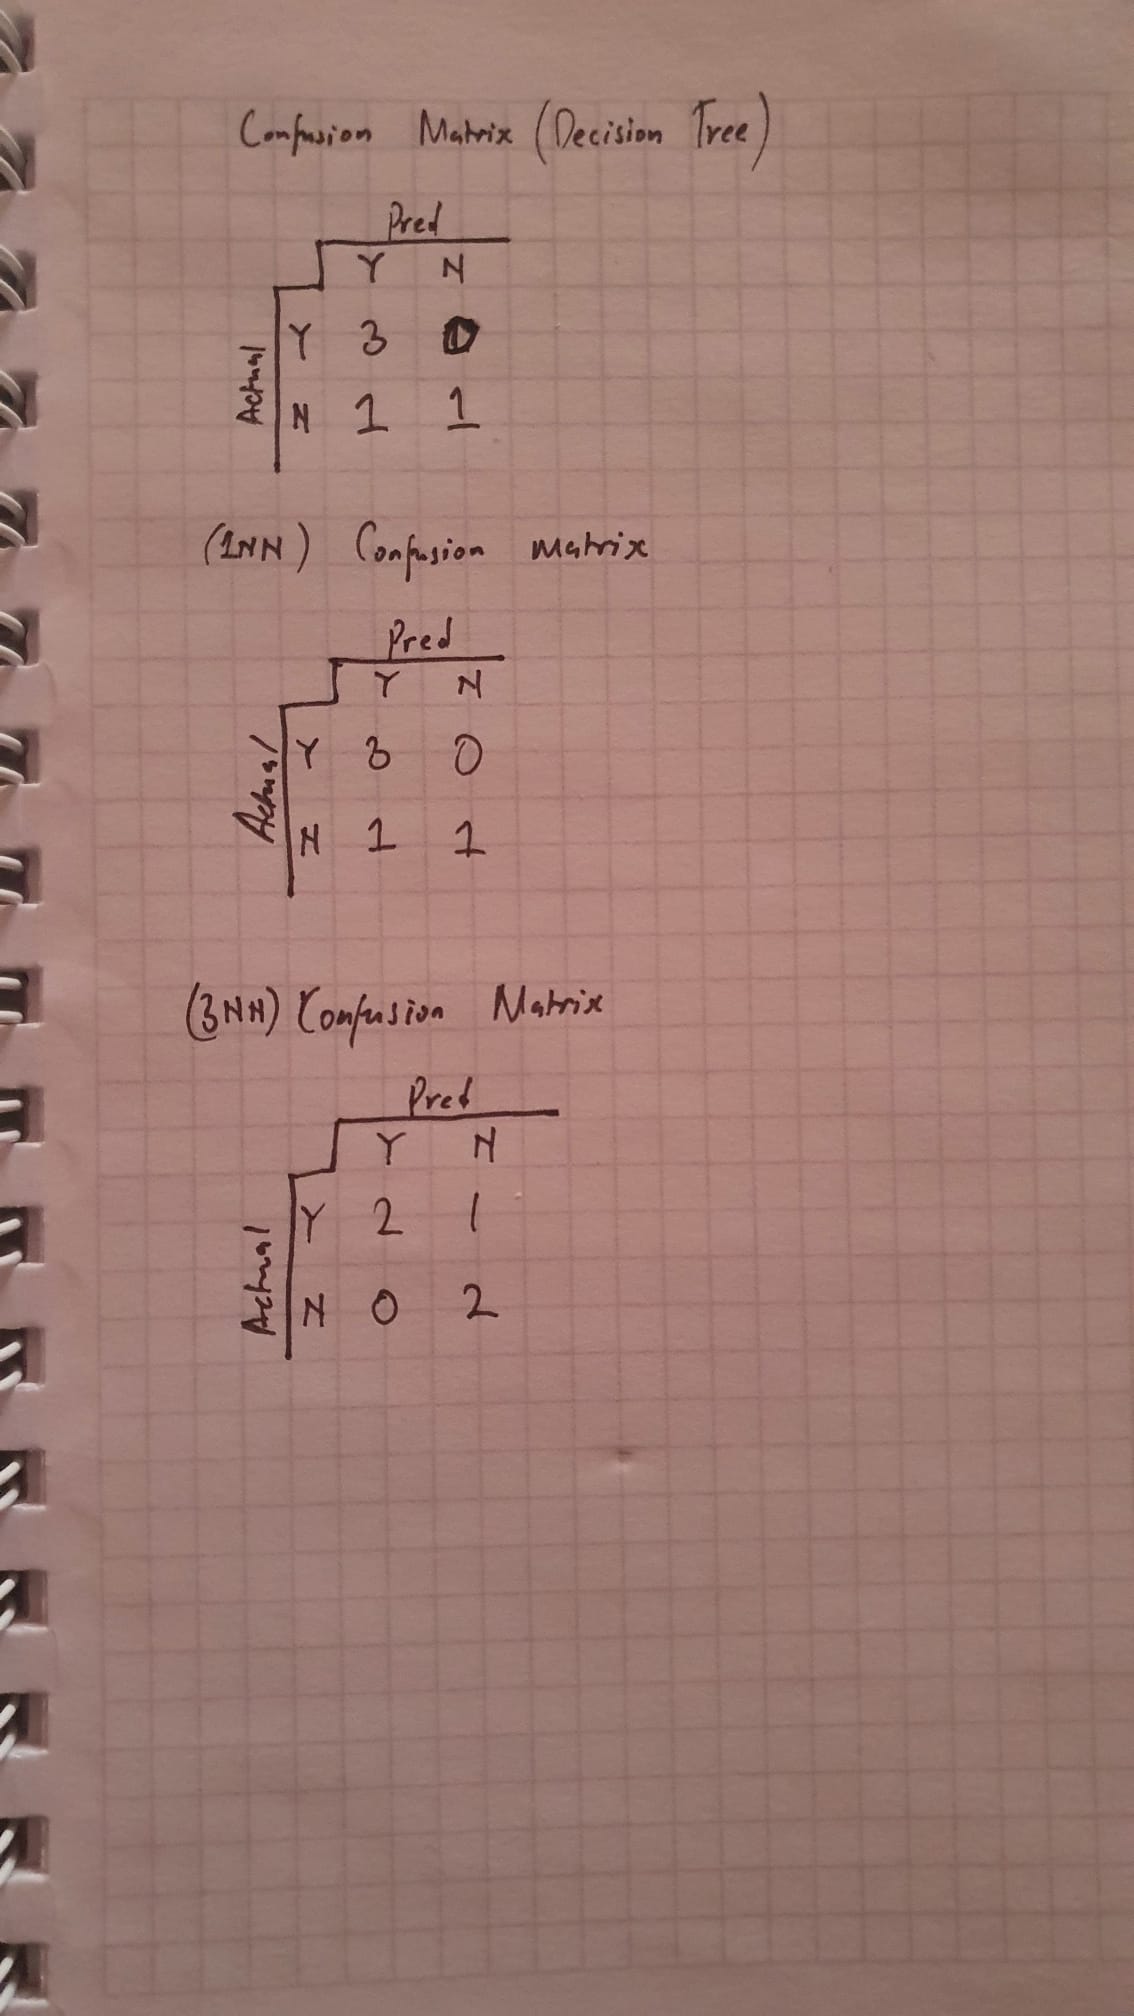 Confusion Matrix (Decision Tree)
Pred
Y N
Actual
Y 3 0
N 1 1
(1NN) Confusion matrix
Pred
Y N
Actual
Y 3 0
N 1 1
(3NN) Confusion Matrix
Pred
Y N
Actual
Y 2 1
N 0 2